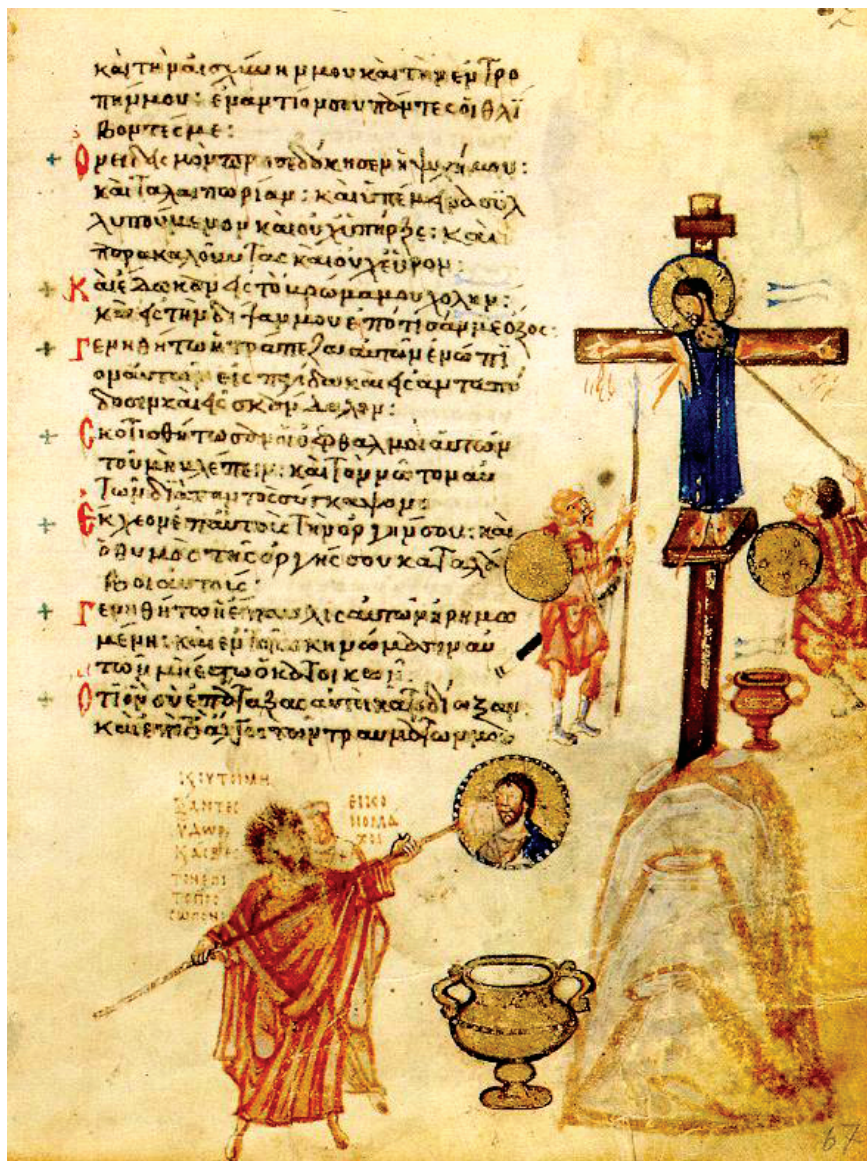 καὶ τὴν αἰσχύνην μου καὶ τὴν ἐντρο
πήν μου: ἐναντίον σου πάντες οἱ θλί
βοντές με:
Ὀνειδισμὸν προσεδόκησεν ἡ ψυχή μου:
καὶ ταλαιπωρίαν: καὶ ὑπέμεινα συλ
λυπούμενον καὶ οὐχ ὑπῆρξε: καὶ
παρακαλοῦντας καὶ οὐχ εὗρον:
Καὶ ἔδωκαν εἰς τὸ βρῶμά μου χολήν:
καὶ εἰς τὴν δίψαν μου ἐπότισάν με ὄξος:
Γενηθήτω ἡ τράπεζα αὐτῶν ἐνώπι
ον αὐτῶν εἰς παγίδα καὶ εἰς ἀνταπό
δοσιν καὶ εἰς σκάνδαλον:
Σκοτισθήτωσαν οἱ ὀφθαλμοὶ αὐτῶν
τοῦ μὴ βλέπειν: καὶ τὸν νῶτον αὐ
τῶν διὰ παντὸς σύγκαμψον:
Ἔκχεον ἐπ' αὐτοὺς τὴν ὀργήν σου: καὶ
ὁ θυμὸς τῆς ὀργῆς σου καταλά
βοι αὐτούς:
Γενηθήτω ἡ ἔπαυλις αὐτῶν ἠρημω
μένη: καὶ ἐν τοῖς σκηνώμασιν αὐ
τῶν μὴ ἔστω ὁ κατοικῶν:
Ὅτι ὃν σὺ ἐπάταξας αὐτοὶ κατεδίωξαν
καὶ ἐπὶ τὸ ἄλγος τῶν τραυμάτων μου
ΞΑΝΤΕΣ
ΥΔΩΡ
ΤΟ ΠΡΟ
ΣΩΠΟΝ
ΕΙΚΟ
ΝΟΜΑ
ΧΟΙ
67